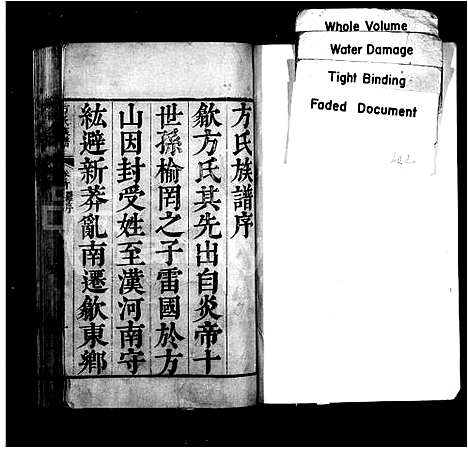 Whole Volume
Water Damage
Tight Binding
Faded Document
方氏族譜序
歙方氏其先出自炎帝十
世孫榆罔之子雷國於方
山因封受姓至漢河南守
紘避新莽亂南遷歙東鄉